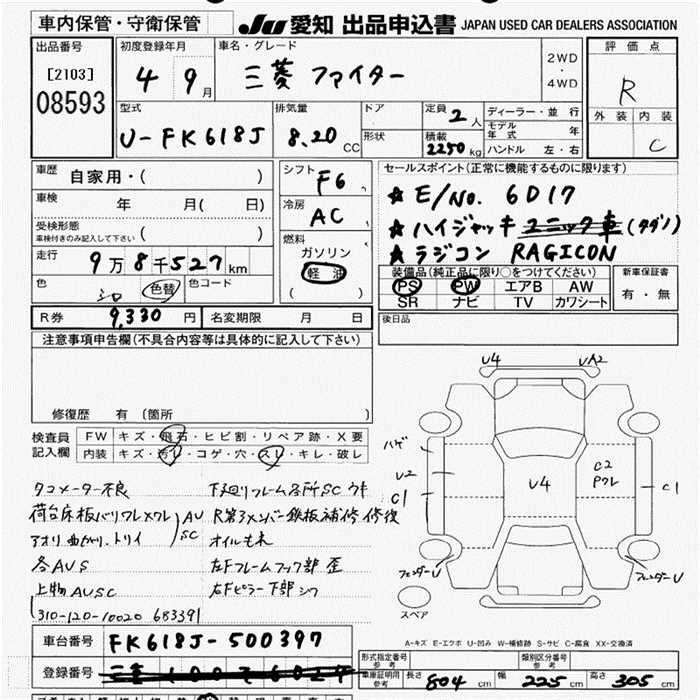 車内保管・守衛保管
JU 愛知 出品申込書 JAPAN USED CAR DEALERS ASSOCIATION
出品番号
[2103]
08593
初度登録年月
4 9月
車名・グレード
三菱 ファイター
2WD
・
4WD
評価点
R
外装 内装
C
型式
U-FK618J
排気量
8.20 CC
ドア
形状
定員 2人
積載 2250kg
ディーラー・並行
モデル年式 年
ハンドル 左・右
車歴 自家用・( )
車検 年 月( 日)
受検形態
車検付きのみ記入して下さい ( )
走行
9万8千527km
色 シロ 色替 色コード
シフト F6
冷房 AC
燃料
ガソリン
軽油
( )
セールスポイント(正常に機能するものに限ります)
★ E/No. 6D17
★ ハイジャッキ ユニック車 (タダノ)
★ ラジコン RAGICON
装備品(純正品に限り○をつけてください)
PS PW エアB AW
SR ナビ TV カワシート
新車保証書
有・無
R券 9,330円 名変期限 月 日
後日品
注意事項申告欄(不具合内容等は具体的に記入して下さい)
修復歴 有 〔箇所 〕
検査員記入欄
FW キズ・飛石・ヒビ割・リペア跡・X要
内装 キズ・汚レ・コゲ・穴・スレ・キレ・破レ
タコメーター不良
荷台床板バリワレメクレ
アオリ曲がり、トリイ
AU
SC
各AUS
上物AUSC
310-120-10020 683391
下廻りフレーム各所SCウキ
R第3メンバー鉄板補修 修復
オイルもれ
左Fフレームフック部 歪
右Fピラー下部 ジワ
U4
UA2
ハゲ
U2
C1
U4
C2
Pワレ
C1
フェンダーU
フェンダーU
スペア
A-キズ E-エクボ U-凹み W-補修跡 S-サビ C-腐食 XX-交換済
車台番号 FK618J-500397
登録番号
形式指定番号
参考
類別区分番号
参考
車庫証明用
参考
長さ 804 cm 幅 225 cm 高さ 305 cm